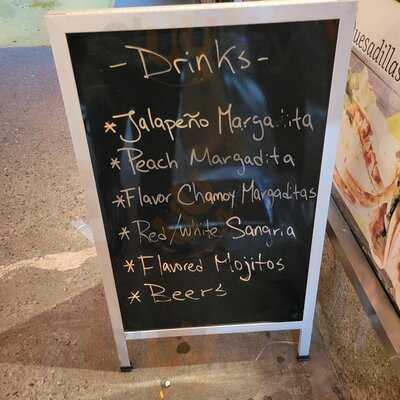 - Drinks -
* Jalapeño Margadita
* Peach Margadita
* Flavor Chamoy Margaditas
* Red/White Sangria
* Flavored Mojitos
* Beers
uesadillas